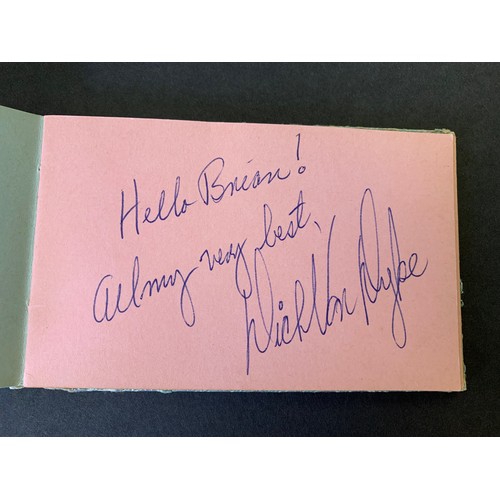 Hello Brian!
All my very best,
Dick Van Dyke